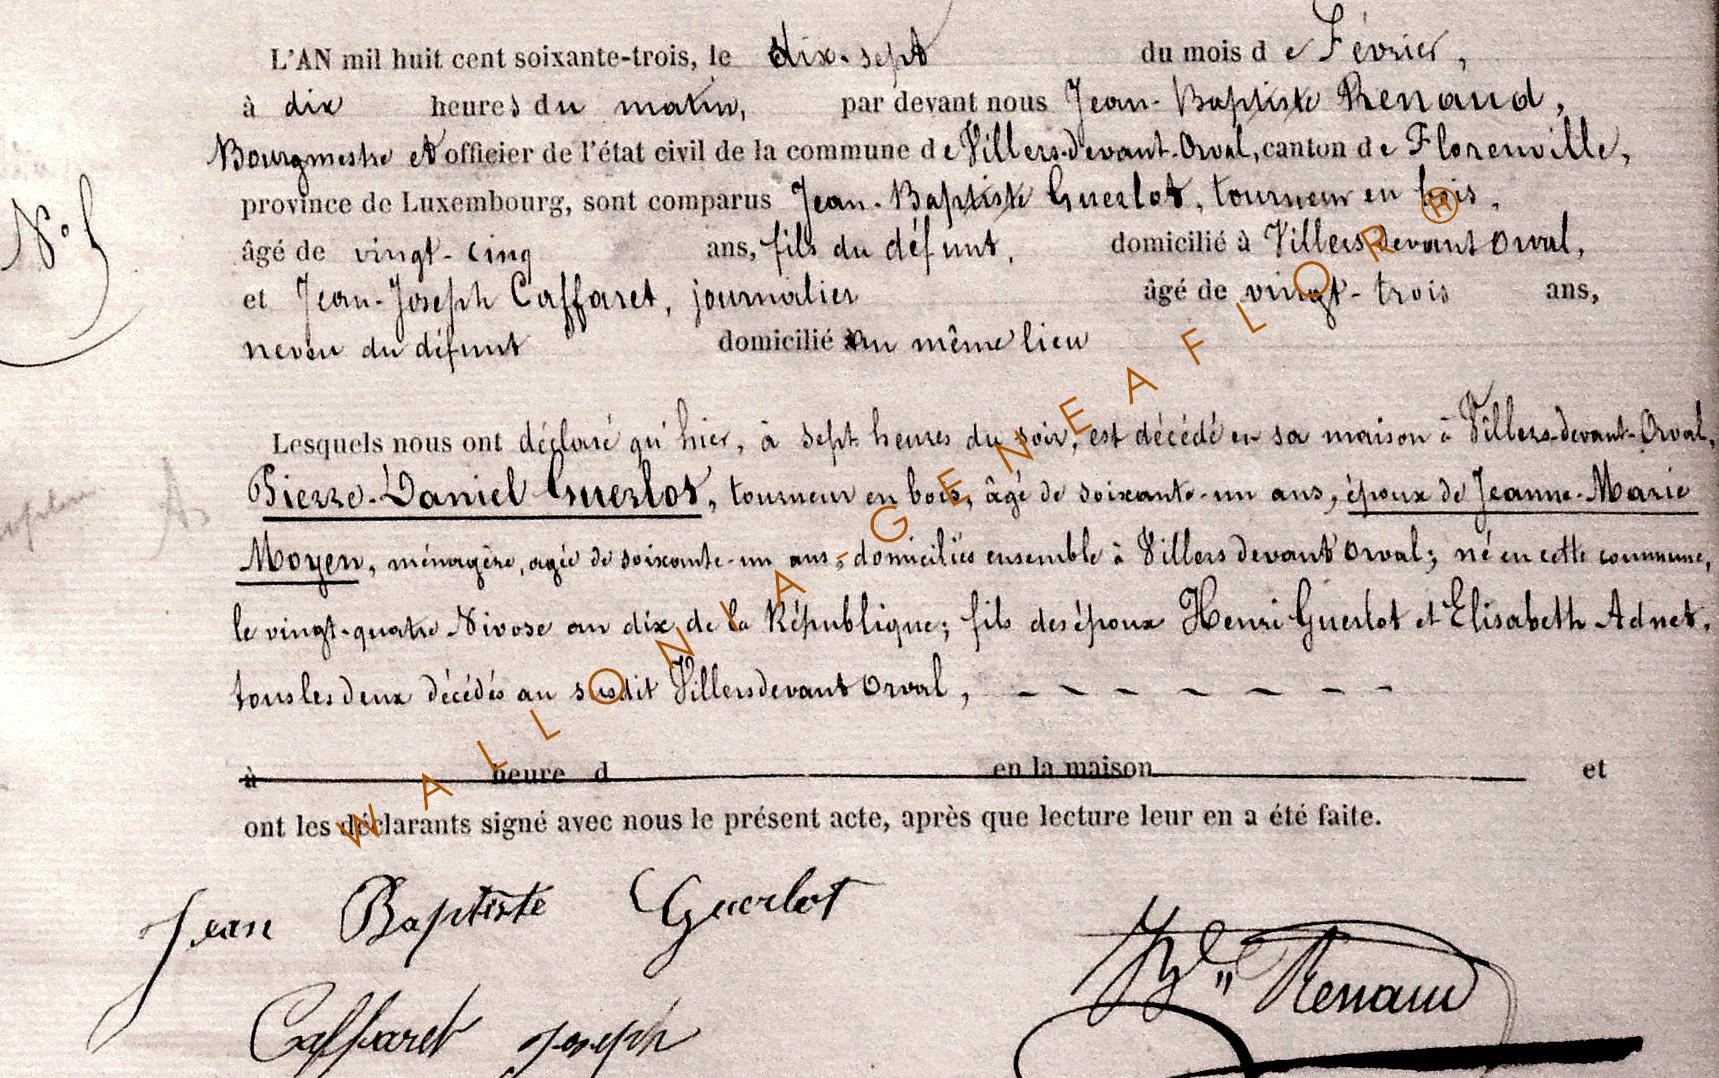 L'AN mil huit cent soixante-trois, le dix-sept du mois de Février,
à dix heures du matin, par devant nous Jean-Baptiste Renaud,
Bourgmestre et officier de l'état civil de la commune de Villers-devant-Orval, canton de Florenville,
province de Luxembourg, sont comparus Jean-Baptiste Guerlot, tourneur en bois,
N° 5
âgé de vingt-cinq ans, fils du défunt, domicilié à Villers devant Orval,
et Jean-Joseph Caffaret, journalier âgé de vingt-trois ans,
neveu du défunt domicilié au même lieu
Lesquels nous ont déclaré qu'hier, à sept heures du soir, est décédé en sa maison à Villers-devant-Orval,
Pierre-Daniel Guerlot, tourneur en bois, âgé de soixante-un ans, époux de Jeanne-Marie
Moyen, ménagère, agée de soixante-un ans, domiciliés ensemble à Villers devant Orval; né en cette commune,
le vingt-quatre Nivose an dix de la République; fils des époux Henri Guerlot et Elisabeth Adnet,
tous les deux décédés au susdit Villers devant Orval, - - - - - - -
à heure d en la maison et
ont les déclarants signé avec nous le présent acte, après que lecture leur en a été faite.
Jean Baptiste Guerlot
Renaud
Caffaret Joseph
WALLONIA-GENEAFLOR®